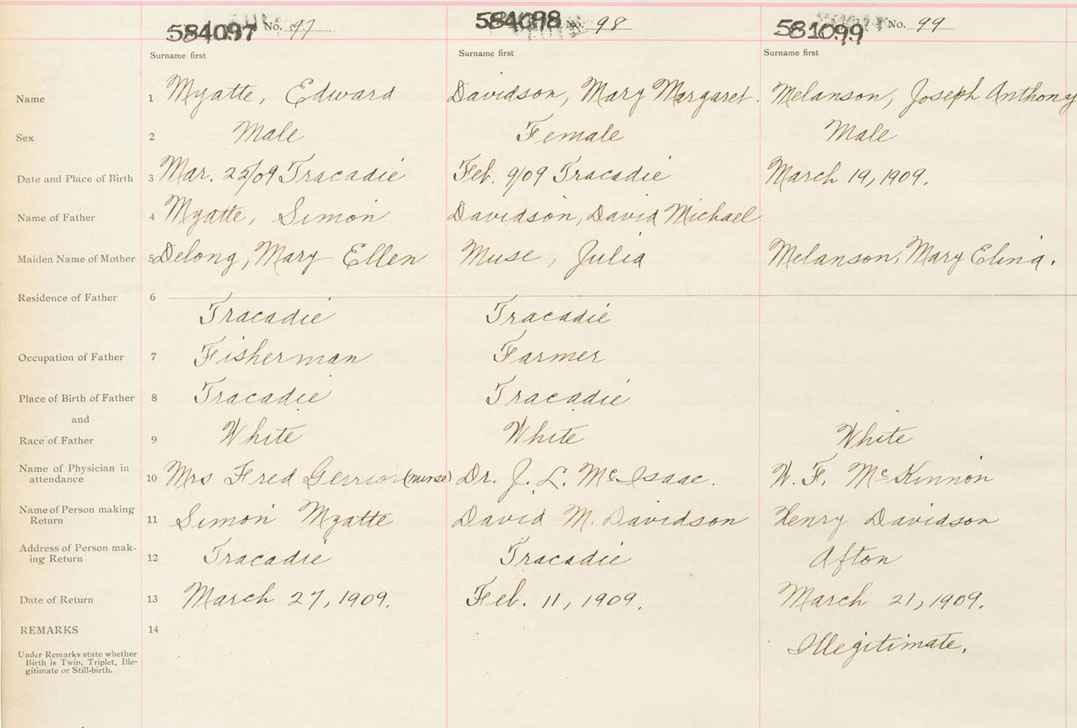 584097 No. 97 584098 No. 98 581099 No. 99
Surname first Surname first Surname first
Name 1 Myatte, Edward Davidson, Mary Margaret. Melanson, Joseph Anthony
Sex 2 Male Female Male
Date and Place of Birth 3 Mar. 25/09 Tracadie Feb. 9/09 Tracadie March 19, 1909.
Name of Father 4 Myatte, Simon Davidson, David Michael
Maiden Name of Mother 5 Delong, Mary Ellen Muse, Julia Melanson, Mary Elina.
Residence of Father 6
Tracadie Tracadie
Occupation of Father 7 Fisherman Farmer
Place of Birth of Father 8 Tracadie Tracadie
and
Race of Father 9 White White White
Name of Physician in
attendance 10 Mrs Fred (nurse) Dr. J. L. McIsaac. W. F. McKinnon
Name of Person making
Return 11 Simon Myatte David M. Davidson Henry Davidson
Address of Person mak-
ing Return 12 Tracadie Tracadie Afton
Date of Return 13 March 27, 1909. Feb. 11, 1909. March 21, 1909.
REMARKS 14
Illegitimate.
Under Remarks state whether
Birth is Twin, Triplet, Ille-
gitimate or Still-birth.